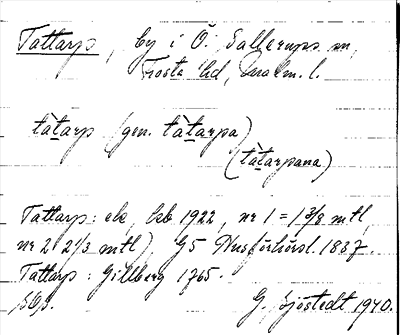 Tattarp, by i Ö. Sallerups sn,
Frosta hd, Malm. l.
tàtarp (gen. tàtarpa)
(tàtarpana)
Tattarp: ek, kb 1922, nr 1 = 1 3/8 mtl,
nr 2: 2 1/3 mtl), G5 Husförhörsl. 1837.
Tattarp: Gillberg 1765.
G. Sjöstedt 1940.